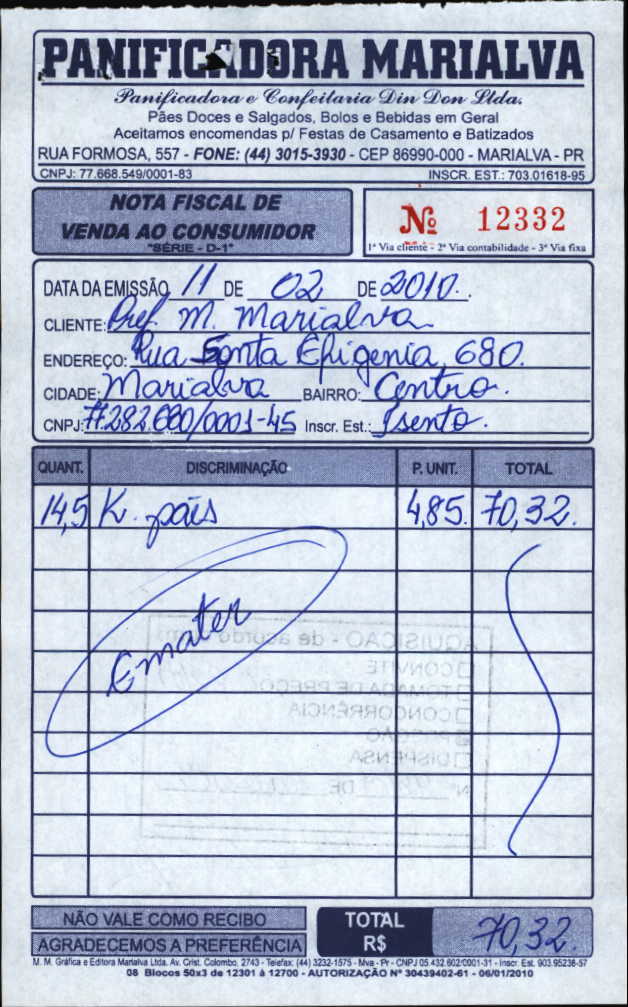 PANIFICADORA MARIALVA
Panificadora e Confeitaria Din Don Ltda.
Pães Doces e Salgados, Bolos e Bebidas em Geral
Aceitamos encomendas p/ Festas de Casamento e Batizados
RUA FORMOSA, 557 - FONE: (44) 3015-3930 - CEP 86990-000 - MARIALVA - PR
CNPJ: 77.668.549/0001-83 INSCR. EST.: 703.01618-95
NOTA FISCAL DE
VENDA AO CONSUMIDOR
"SÉRIE - D-1"
Nº 12332
1ª Via cliente - 2ª Via contabilidade - 3ª Via fixa
DATA DA EMISSÃO 11 DE 02 DE 2010.
CLIENTE: Pref. M. Marialva
ENDEREÇO: Rua Santa Efigenia, 680.
CIDADE: Marialva BAIRRO: Centro.
CNPJ: 77.282.680/0001-45 Inscr. Est.: Isento.
QUANT. DISCRIMINAÇÃO P. UNIT. TOTAL
14,5 K. pães 4,85. 70,32.
Emater
AQUISIÇÃO - de acordo
CONVITE
TOMADA DE PREÇO
CONCORRÊNCIA
PREGÃO
DISPENSA
Nº DE
NÃO VALE COMO RECIBO
AGRADECEMOS A PREFERÊNCIA
TOTAL
R$ 70,32.
M. M. Gráfica e Editora Marialva Ltda. Av. Crist. Colombo, 2743 - Telefax: (44) 3232-1575 - Mva - Pr - CNPJ 05.432.602/0001-31 - Inscr. Est. 903.95236-57
08 Blocos 50x3 de 12301 à 12700 - AUTORIZAÇÃO Nº 30439402-61 - 06/01/2010